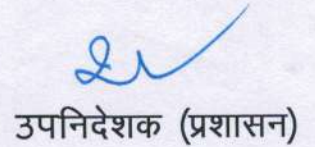 उपनिदेशक (प्रशासन)